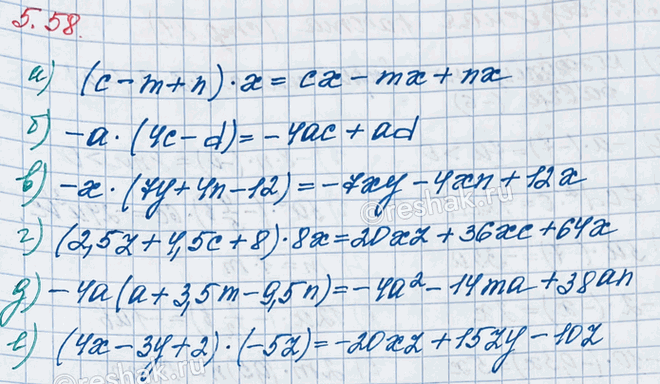 5.58.
а) (c-m+n)·x=cx-mx+nx
б) -a·(4c-d)=-4ac+ad
в) -x·(7y+4n-12)=-7xy-4xn+12x
г) (2,5z+4,5c+8)·8x=20xz+36xc+64x
д) -4a(a+3,5m-9,5n)=-4a²-14ma+38an
е) (4x-3y+2)·(-5z)=-20xz+15zy-10z
©reshak.ru